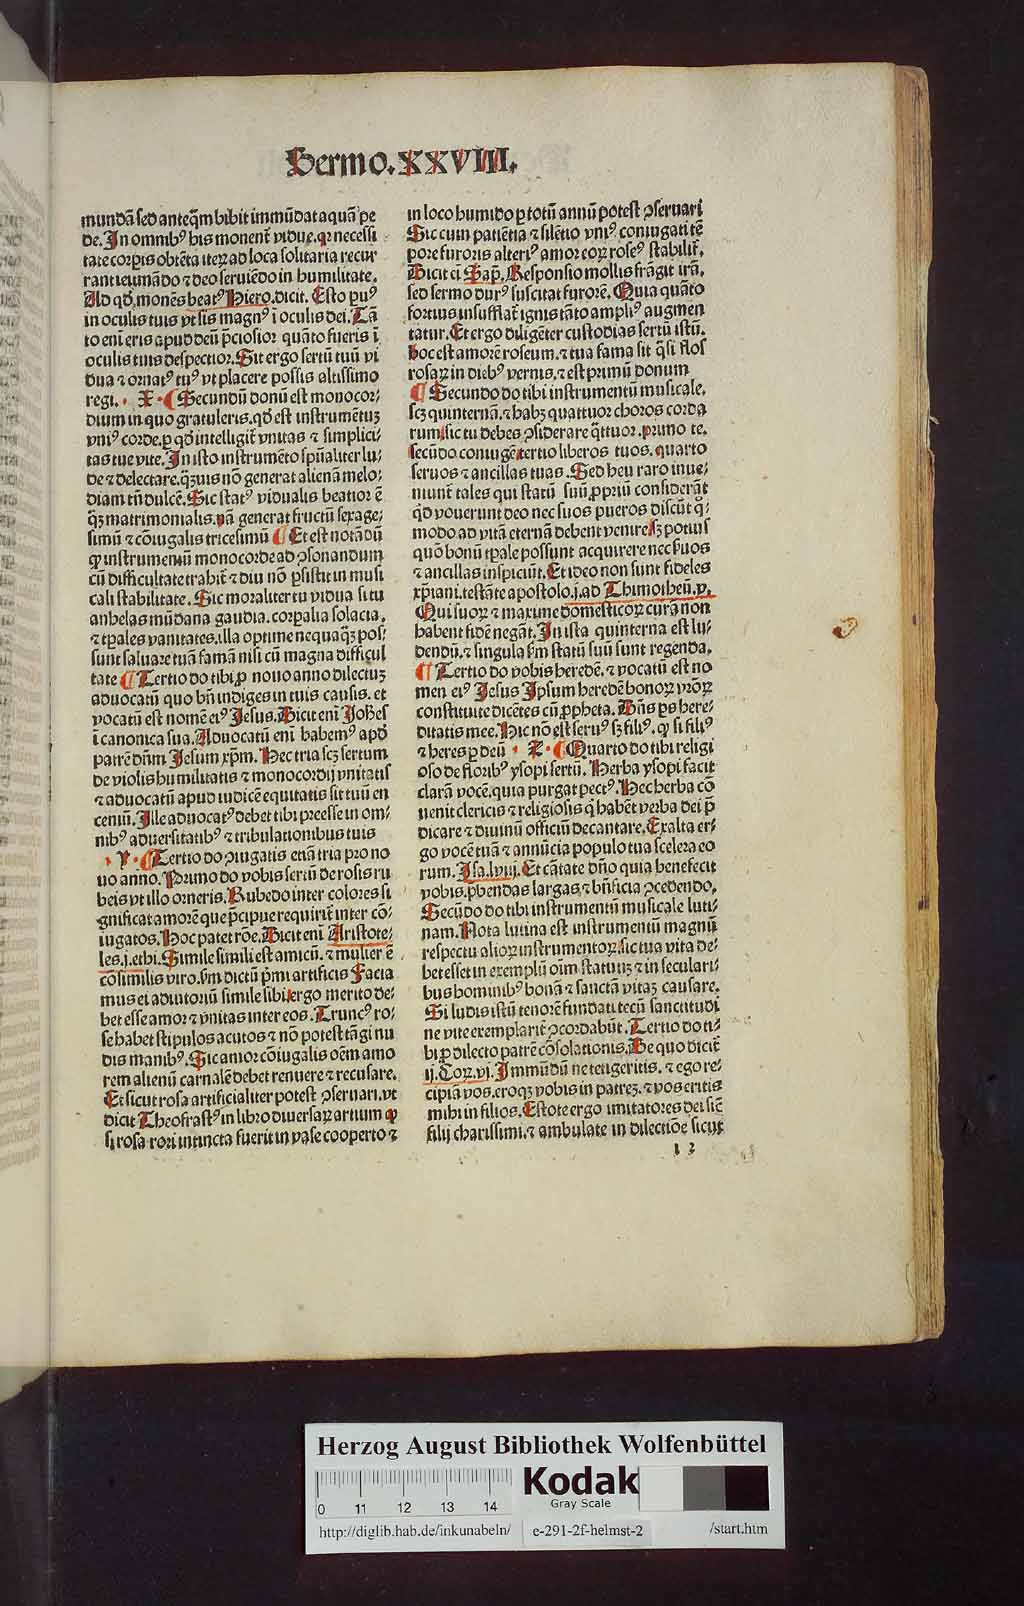 Sermo.XXVIII.
mundā sed anteq̄m bibit immūdat aquā pe
de. In omnibꝰ his monent̄ vidue. qꝛ necessi
tate corpis obtēta iteꝝ ad loca solitaria recur
rant ieiunādo ⁊ deo seruiēdo in humilitate.
Ad qd̓ monēs beatꝰ Hiero. dicit. Esto puꝰ
in oculis tuis vt sis magnꝰ ī oculis dei. Tā
to eni eris apud deū p̄ciosior quāto fueris ī
oculis tuis despectior. Sit ergo sertū tuū vi
dua ⁊ ornatꝰ tuꝰ vt placere possis altissimo
regi. · X · ¶ Secundū donū est monocor⸗
dium in quo gratuleris. qd̓ est instrumētuꝫ
vniꝰ corde. ꝑ qd̓ intelligit̄ vnitas ⁊ simplici⸗
tas tue vite. In isto instrumēto spūaliter lu⸗
de ⁊ delectare. qꝫuis nō generat alienā melo⸗
diam tn̄ dulcē. Sic statꝰ vidualis beatior ē
qꝫ matrimonialis. nā generat fructū sexage⸗
simū ⁊ cōiugalis tricesimū ¶ Et est notādū
ꝙ instrumentū monocorde ad ꝯsonandum
cū difficultate trahit̄ ⁊ diu nō ꝑsistit in musi
cali stabilitate. Sic moraliter tu vidua si tu
anhelas mūdana gaudia. corpalia solacia.
⁊ tpales vanitates. illa optime nequaqꝫ pos⸗
sunt saluare tuā famā nisi cū magna difficul
tate ¶ Tertio do tibi ꝓ nouo anno dilectuꝫ
aduocatū quo bn̄ indiges in tuis causis. et
vocatū est nomē eiꝰ Jesus. Dicit eni Johēs
ī canonica sua. Aduocatū eni habemꝰ apd̓
patrē dn̄m Jesum xp̄m. Hec tria scꝫ sertum
de violis humilitatis ⁊ monocordij vnitatis
⁊ aduocatū apud iudicē equitatis sit tuū en
ceniū. Ille aduocatꝰ debet tibi preesse in om⸗
nibꝰ aduersitatibꝰ ⁊ tribulationibus tuis
· Y · ¶ Tertio do ꝯiugatis etiā tria pro no
uo anno. Primo do vobis sertū de rosis ru
beis vt illo orneris. Rubedo inter colores si
gnificat amorē que p̄cipue requirit̄ inter cō⸗
iugatos. Hoc patet rōe. Dicit eni Aristote⸗
les. j. ethi. Simile simili est amicū. ⁊ mulier ē
cōsimilis viro. ẜm dictū pͥmi artificis Facia
mus ei adiutoriū simile sibi. ergo merito de⸗
bet esse amor ⁊ vnitas inter eos. Truncꝰ ro⸗
se habet stipulos acutos ⁊ nō potest tāgi nu
dis manibꝰ. Sic amor cōiugalis oēm amo
rem alienū carnalē debet renuere ⁊ recusare.
Et sicut rosa artificialiter potest ꝯseruari. vt
dicit Theofrastꝰ in libro diuersaꝝ artium ꝙ
si rosa rori intincta fuerit in vase cooperto ⁊
in loco humido ꝑ totū annū potest ꝯseruari
Sic cum patiētia ⁊ silētio vniꝰ coniugati tē
pore furoris alteriꝰ amor coꝝ roseꝰ stabilit̄.
Dicit ci Sap̄. Responsio mollis frāgit irā.
sed sermo durꝰ suscitat furorē. Quia quāto
fortius insufflat̄ ignis tāto ampliꝰ augmen
tatur. Et ergo diligēter custodias sertū istū.
hoc est amorē roseum. ⁊ tua fama sit q̄si flos
rosaꝝ in diebꝰ vernis. ⁊ est primū donum
¶ Secundo do tibi instrumentū musicale.
scꝫ quinternā. ⁊ habꝫ quattuor choros corda
rum. sic tu debes ꝯsiderare q̄ttuor. primo te.
secūdo coniugē. tertio liberos tuos. quarto
seruos ⁊ ancillas tuas. Sed heu raro inue⸗
niunt̄ tales qui statū suū ꝓpriū considerāt
qd̓ vouerunt deo nec suos pueros discūt qͦ⸗
modo ad vitā eternā debent venire. sꝫ potius
quō bonū tpale possunt acquirere nec suos
⁊ ancillas inspiciūt. Et ideo non sunt fideles
xp̄iani. testāte apostolo. j. ad Thimotheū. v.
Qui suoꝝ ⁊ maxime domesticoꝝ curā non
habent fidē negāt. In ista quinterna est lu⸗
dendū. ⁊ singula ẜm statū suū sunt regenda.
¶ Tertio do vobis heredē. ⁊ vocatū est no
men eiꝰ Jesus Ipsum heredē bonoꝝ vr̄oꝝ
constituite dicētes cū ꝓpheta. Dn̄s ps here⸗
ditatis mee. Hic nō est seruꝰ sꝫ filiꝰ. ꝙ si filiꝰ
⁊ heres ꝑ deū · Z · ¶ Quarto do tibi religi
oso de floribꝰ ysopi sertū. Herba ysopi facit
clarā vocē. quia purgat pectꝰ. Hec herba cō
uenit clericis ⁊ religiosis qͥ habēt verba dei p̄
dicare ⁊ diuinū officiū decantare. Exalta er⸗
go vocē tuā ⁊ annūcia populo tua scelera eo
rum. Isa. lviij. Et cātate dn̄o quia benefecit
vobis. p̄bendas largas ⁊ bn̄ficia ꝯcedendo.
Secūdo do tibi instrumentū musicale luti⸗
nam. Nota lutina est instrumentū magnū
respectu alioꝝ instrumentoꝝ. sic tua vita de⸗
bet esse in exemplū oīm statuuꝫ ⁊ in seculari⸗
bus hominibꝰ bonā ⁊ sanctā vitaꝫ causare.
Si ludis istū tenorē fundati tecū sanctitudi
ne vite exemplarit̄ ꝯcordabūt. Tertio do ti⸗
bi ꝓ dilecto patrē cōsolationis. De quo dicit̄
ij. Coꝝ. vi. Immūdū ne tetigeritis. ⁊ ego re⸗
cipiā vos. eroqꝫ vobis in patreꝫ. ⁊ vos eritis
mihi in filios. Estote ergo imitatores dei sic̄
filij charissimi. ⁊ ambulate in dilectiōe sicut
l 3
Herzog August Bibliothek Wolfenbüttel
Kodak
Gray Scale
0 11 12 13 14
http://diglib.hab.de/inkunabeln/ e-291-2f-helmst-2 /start.htm